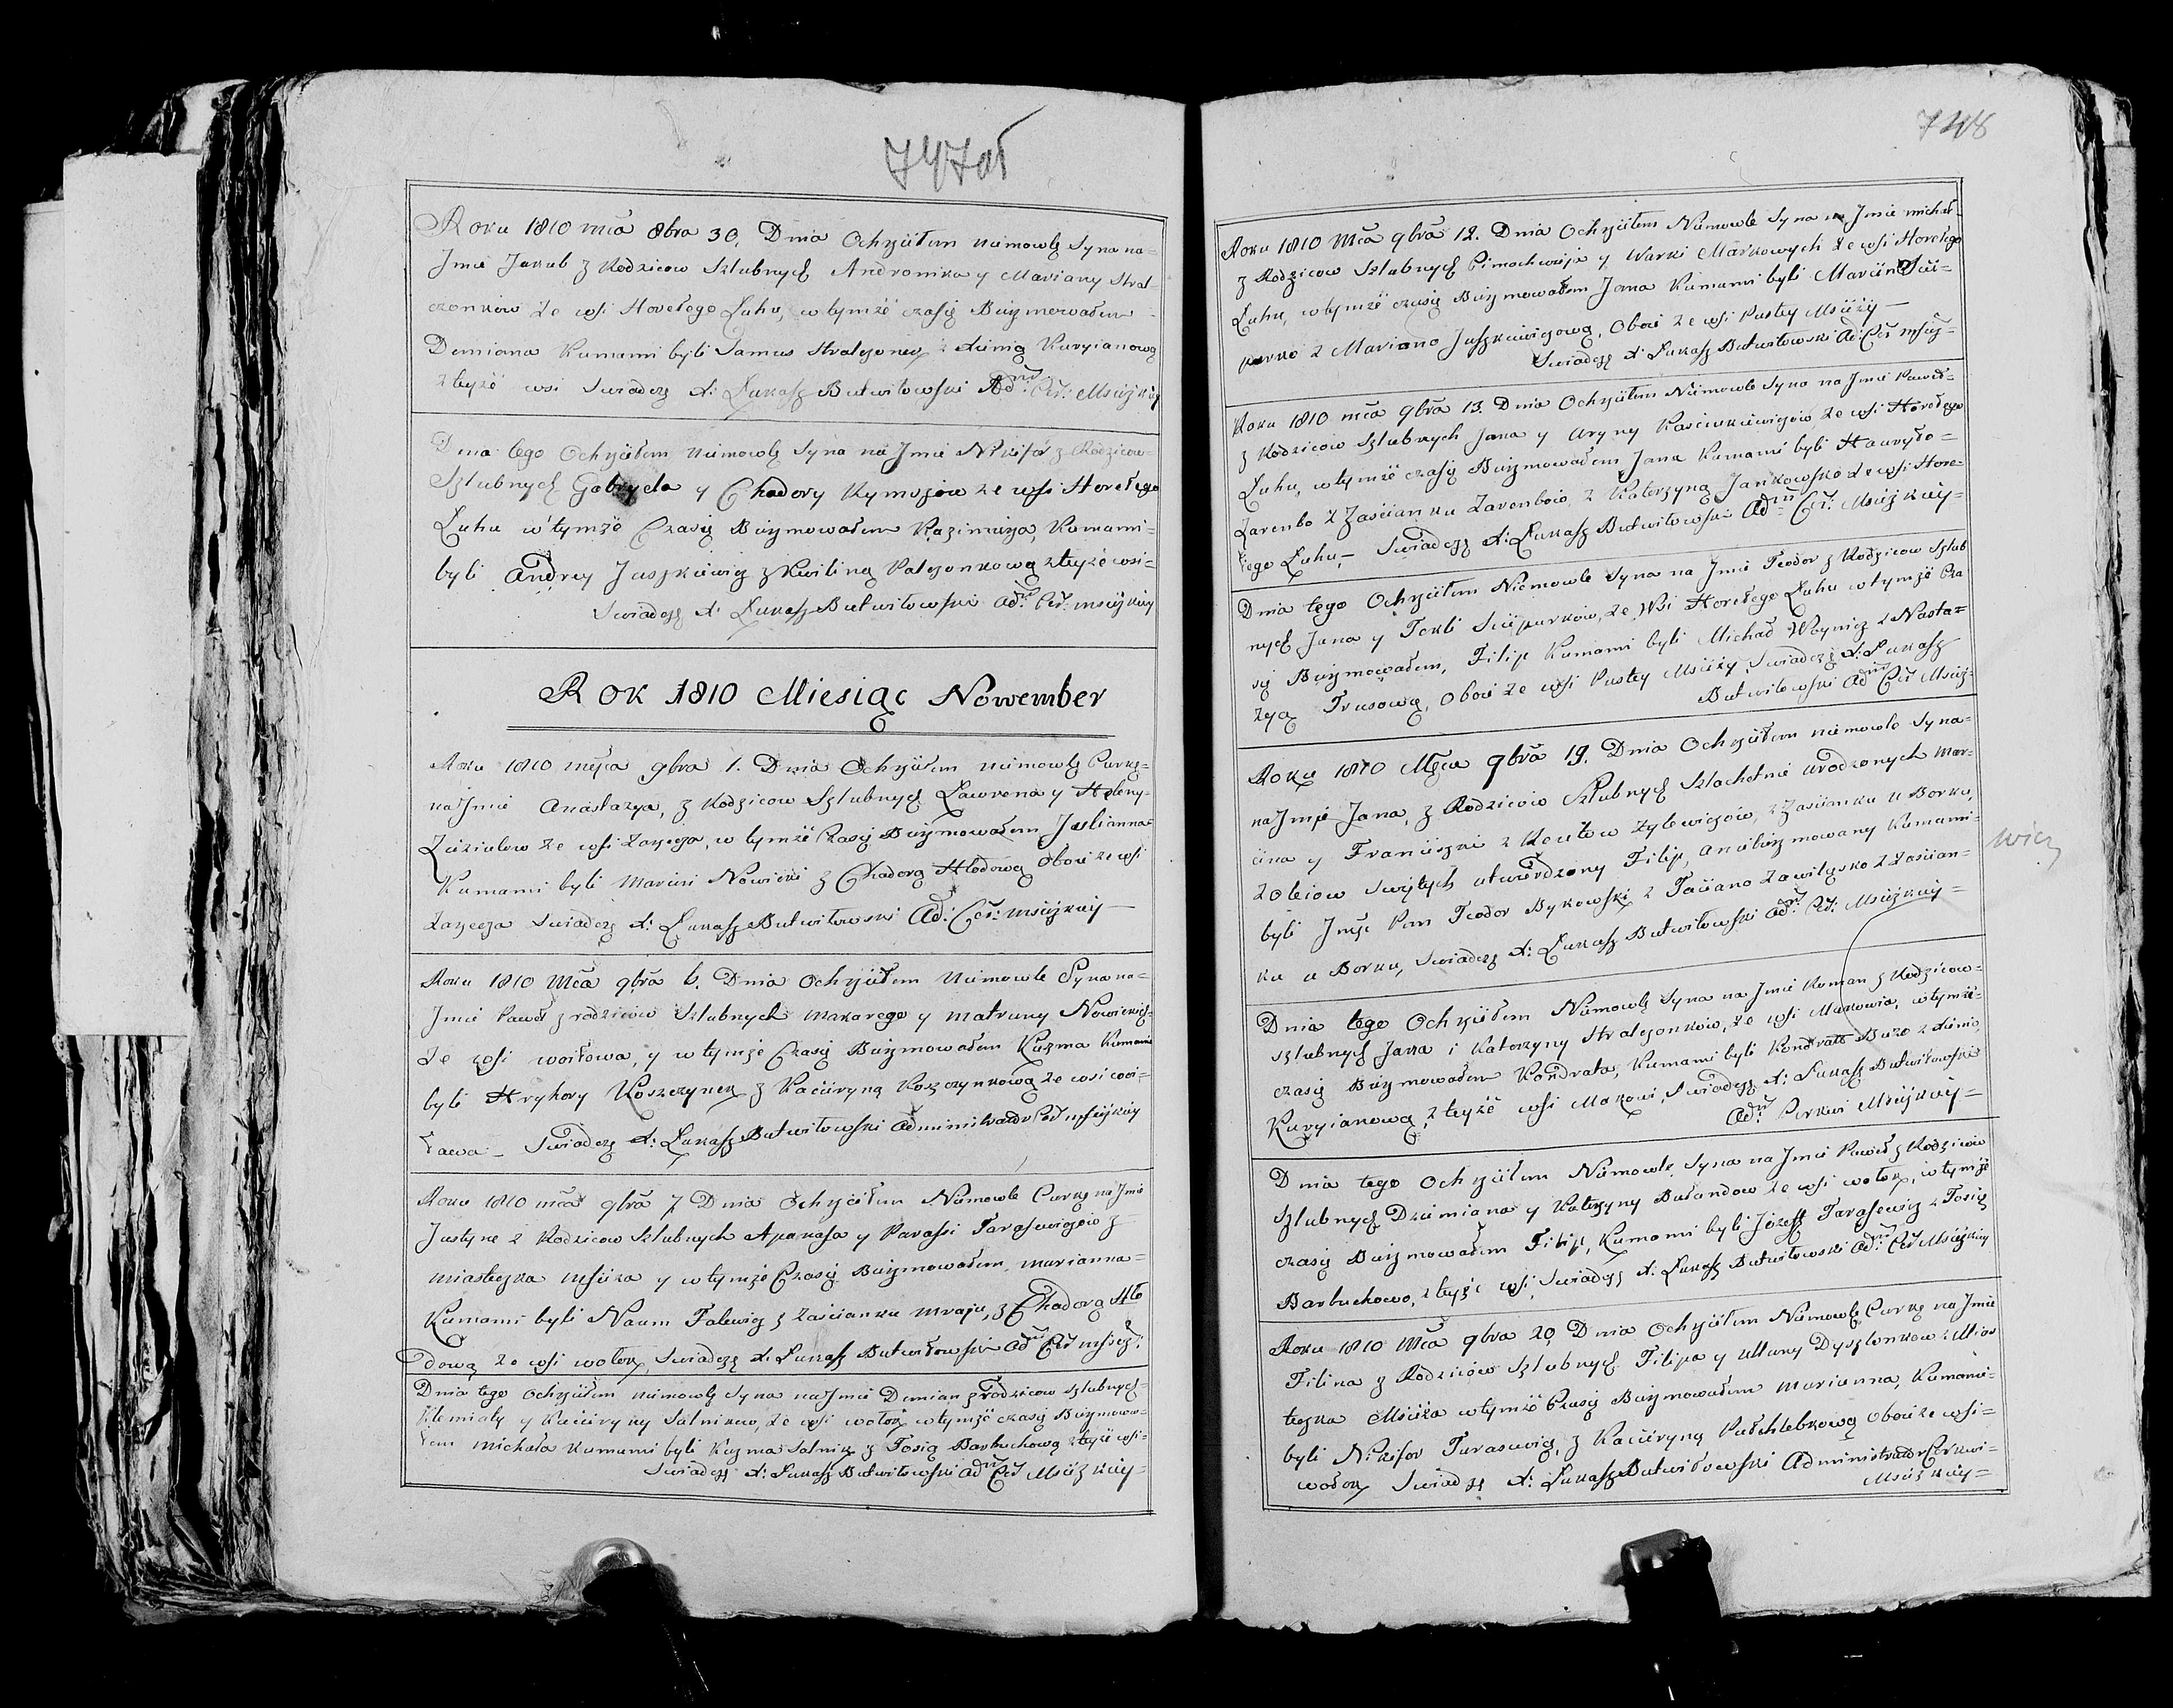 747об
Roku 1810 mca 8bra 30. Dnia Ochrzciłem niemowle Syna na=
Jmie Jakub z Rodzicow Szlubnych Andronika y Maryany Stral
czonkow ze wsi Horełego Łuhu, w tymże czasię Bierzmowałem
Demiana Kumami byli Samus Stralczonek z Kurjianową
z teyże wsi Swiadczę X: Łukasz Butwiłowski Adm: Cer: Mscizkiey
Dnia tego Ochrzciłem niemowlę Syna na Jmie Nikifor z Rodzicow=
Szlubnych Gabryela y Chadory ze wsi Horełego
Łuhu w tymże Czasię Bierzmowałem Kazimierza, Kumami=
byli Andrey Juszkiewicz z teyże wsi=
Swiadczę X: Łukasz Butwiłowski Adm: Cer: mscizkiey
Rok 1810 Miesiąc Nowember
Roku 1810 mca 9bra 1. Dnia Ochrzciłem niemowlę Curkę=
na Jmie Anastazya, z Rodzicow Szlubnych Ławrena y Heleny=
ze wsi Zayecza, w tymże Czasię Bierzmowałem Julianna
Kumami byli Marcin Nowicki z Chadorą Hłodową Oboie ze wsi
Zayecza Swiadczę X: Łukasz Butwiłowski Ad: Cer: Mscizkiey
Roku 1810 Mca 9bra 6. Dnia Ochrzciłem Niemowle Syna na=
Jmie Paweł z rodzicow Szlubnych Makarego y Matruny Nowickich=
ze wsi woiłowa, y w tymże Czasię Bierzmowałem Kuzma Kumami
byli Hryhory Koszczynek z Kacieryną Koszczynkową ze wsi woi=
ława Swiadczę X: Łukasz Butwiłowski Administrator Cer mscizkiey
Roku 1810 mca 9bra 7 Dnia Ochrzciłem Niemowle Curkę na Jmie
Justyne z Rodzicow Szlubnych Apanasa y Parassi Tarasewiczow z
miasteczka Msciża y w tymże Czasię Bierzmowałem, marianna=
Kumami byli Naum Falewicz z zascianku Mraju, z Chadorą Hło
dową ze wsi wołok, Swiadczę X. Łukasz Butwiłowski Ad Cer mscizk:
Dnia tego Ochrzciłem niemowlę Syna na Jmie Demian z rodzicow szlubnych=
y Kacieryny Salnikow, ze wsi wołok w tymże czasię Bierzmowa=
łem Michała Kumami byli Kuzma Salnik z Fosią Barbuchową z teyże wsi=
Swiadczę X: Łukasz Butwiłowski Ad Cer Mscizkiey=
748
Roku 1810 Mca 9bra 12. Dnia Ochrzciłem Niemowle Syna na Jmie Michał=
z Rodzicow Szlubnych y Warki Markowych ze wsi Horełego
Łuhu, w tymże czasię Bierzmowałem Jana Kumami byli MarcinŚcie=
purko z Mariano Juszkiewiczową, Oboie ze wsi Pustey Msciży
Swiadczę X Łukasz Butwiłowski Ad: Cer mscizk=
Roku 1810 mca 9bra 13. Dnia Ochrzciłem Niemowle Syna na Jmie Paweł=
z Rodzicow Szlubnych Jana y Aryny ze wsi Horełego
Łuhu, w tymże czasię Bierzmowałem Jana Kumami byli Hauryło=
Zarenbo z Zascianku Zarenbow, z Katerzyną Jankowsko ze wsi Hore=
łego Łuhu, Swiadczę X: Łukasz Butwiłowski Adm Cer: Mscizkiey=
Dnia tego Ochrzciłem Niemowle Syna na Jmie Teodor z Rodzicow Szlub
nych Jana y Tekli Sciepurkow, ze Wsi Horełego Łuhu w tymże Cza
się Bierzmowałem, Filip Kumami byli Michał Woynicz z Nasta=
zyą Trusową, Oboie ze wsi Pustey Msciży, Swiadczę X: Łukasz
Butwiłowski Adm Cer Mscizk=
Roku 1810 Mca 9bra 19. Dnia Ochrzciłem niemowle Syna=
na Jmie Jana, z Rodzicow Szlubnych Szlachetnie urodzonych Mar=
cina y Franciszki z Żylewiczow, z Zascianku u Borku,
z Oleiow Swiętych utwierdzony Filip, Kumami=
byli Jmsc Pan Teodor Bykowski z Zascian=
ku u Borku, Swiadczę X: Łukasz Butwiłowski Ad: Cer: Mscizkiey=
wicz
Dnia tego Ochrzciłem Niemowlę Syna na Jmie Roman z Rodzicow=
szlubnych Jana i Katerzyny Stralczonkow, ze wsi Makowia, w tymże=
czasię Bierzmowałem Kondrata, Kumami byli Kondrat
Kurjianową, z teyże wsi Makowi, Swiadczę X: Łukasz Butwiłowski
Ad: Cerkwi Mscizkiey=
Dnia tego Ochrzciłem Niemowlę Syna na Jmie Paweł z Rodzicow
Szlubnych Dziemiana y Katerzyny Bułandow ze wsi wołok, w tymże
czasię Bierzmowałem Filip, Kumami byli Jozeff Tarasewicz z Fosią
Barbuchowo, z teyże wsi, Swiadczę X. Łukasz Butwiłowski Ad: Cer Mscizkiey
Roku 1810 Mca 9bra 20 Dnia Ochrzciłem Niemowlę Curkę na Jmie
Filina z Rodzicow Szlubnych Filipa y Ullany z Mias
teczka Msciża w tymże Czasię Bierzmowałem Marianna, Kumami=
byli Nikifor Tarasewicz, z Kacieryną Oboie ze wsi=
wołok Swiadczę X: Łukasz Butwiłowski Administrator Cerkwi=
Mscizkiey=